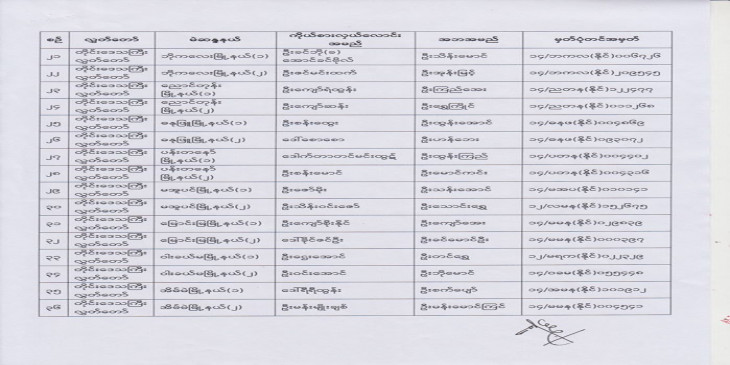 စဉ် လွှတ်တော် မဲဆန္ဒနယ် ကိုယ်စားလှယ်လောင်း အဘအမည် မှတ်ပုံတင်အမှတ်
အမည်
၂၁ တိုင်းဒေသကြီး ဘိုကလေးမြို့နယ်(၁) ဦးခင်ဘို(ခ) ဦးသိန်းမောင် ၁၄/ဘကလ(နိုင်)၀၀၆၇၂၆
လွှတ်တော် အောင်ခင်ဗိုလ်
၂၂ တိုင်းဒေသကြီး ဘိုကလေးမြို့နယ်(၂) ဦးခင်မင်းထက် ဦးအုန်းမြင့် ၁၄/ဘကလ(နိုင်)၂၀၅၅၄၅
လွှတ်တော်
၂၃ တိုင်းဒေသကြီး ညောင်တုန်း ဦးကျော်ရဲထွန်း ဦးကြည်အေး ၁၄/ညတန(နိုင်)၁၂၂၄၇၇
လွှတ်တော် မြို့နယ်(၁)
၂၄ တိုင်းဒေသကြီး ညောင်တုန်း ဦးကျော်ဆန်း ဦးရွှေကြိုင် ၁၄/ညတန(နိုင်)၀၁၁၂၆၈
လွှတ်တော် မြို့နယ်(၂)
၂၅ တိုင်းဒေသကြီး ဓနုဖြူမြို့နယ်(၁) ဦးစန်းထွေး ဦးထွန်းအောင် ၁၄/ဓနဖ(နိုင်)၀၀၄၈၆၉
လွှတ်တော်
၂၆ တိုင်းဒေသကြီး ဓနုဖြူမြို့နယ်(၂) ဒေါ်စောစော ဦးဟန်ဘေး ၁၄/ဓနဖ(နိုင်)၀၉၃၀၇၂
လွှတ်တော်
၂၇ တိုင်းဒေသကြီး ပန်းတနော် ဦးထွန်းကြည် ၁၄/ပတန(နိုင်)၀၀၄၄၀၂
လွှတ်တော် မြို့နယ်(၁)
၂၈ တိုင်းဒေသကြီး ပန်းတနော် ဦးစန်းမောင် ဦးမောင်ကင်း ၁၄/ပတန(နိုင်)၀၀၄၃၁၆
လွှတ်တော် မြို့နယ်(၂)
၂၉ တိုင်းဒေသကြီး မအူပင်မြို့နယ်(၁) ဦးဇော်မိုး ဦးသန်းအောင် ၁၄/မအပ(နိုင်)၀၀၀၁၄၁
လွှတ်တော်
၃၀ တိုင်းဒေသကြီး မအူပင်မြို့နယ်(၂) ဦးသိန်းဝင်းဇော် ဦးသောင်းရွှေ ၁၂/လမန(နိုင်)၁၅၂၆၇၅
လွှတ်တော်
၃၁ တိုင်းဒေသကြီး မြောင်းမြမြို့နယ်(၁) ဦးကျော်စိုးနိုင် ဦးကျော်အေး ၁၄/မမန(နိုင်)၀၂၉၈၃၉
လွှတ်တော်
၃၂ တိုင်းဒေသကြီး မြောင်းမြမြို့နယ်(၂) ဒေါ်ခိုင်ဇင်ဦး ဦးခင်မောင်ဦး ၁၄/မမန(နိုင်)၀၀၀၃၉၇
လွှတ်တော်
၃၃ တိုင်းဒေသကြီး ဝါးခယ်မမြို့နယ်(၁) ဦးငွေအောင် ဦးတင်ရွှေ ၁၂/မရက(နိုင်)၀၂၂၃၂၉
လွှတ်တော်
၃၄ တိုင်းဒေသကြီး ဝါးခယ်မမြို့နယ်(၂) ဦးဝင်းအောင် ဦးဘိုမောင် ၁၄/ဝခမ(နိုင်)၀၅၅၄၄၈
လွှတ်တော်
၃၅ တိုင်းဒေသကြီး အိမ်မဲမြို့နယ်(၁) ဒေါ်ရီရီထွန်း ဦးစက်ပျော် ၁၄/အမန(နိုင်)၁၀၁၉၁၂
လွှတ်တော်
၃၆ တိုင်းဒေသကြီး အိမ်မဲမြို့နယ်(၂) ဦးမန်းမျိုးချစ် ဦးမန်းမောင်ကြင် ၁၄/မမန(နိုင်)၀၀၄၅၄၁
လွှတ်တော်